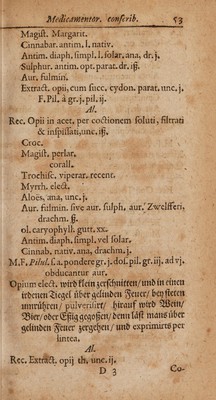 Medicamentor. conscrib. 53
Magist. Margarit.
Cinnabar. antim. l. nativ.
Antim. diaph. simpl. l. solar, ana, dr. j.
Sulphur. antim. opt. parat. dr. iß.
Aur. fulmin.
Extract. opii, cum succ. cydon. parat. unc. j.
F. Pil. à gr. j. pil. ij.
Al.
Rec. Opii in acet. per coctionem soluti, filtrati
& inspissati, unc. iß.
Croc.
Magist. perlar,
corall.
Trochisc. viperar. recent.
Myrrh. elect.
Aloës, ana, unc. j.
Aur. fulmin. sive aur. sulph. aur. Zwelfferi,
drachm. ß.
ol. caryophyll. gutt. xx.
Antim. diaph. simpl. vel solar,
Cinnab. nativ. ana, drachm. j.
M. F. Pilul. s. a. pondere gr. j. dos. pil. gr. iij. ad vj.
obducantur aur.
Opium elect. wird klein zerschnitten/ und in einen
irdenen Tiegel über gelinden Feuer/ bey steten
umrühren/ pulverisirt/ hierauf wird Wein/
Bier/ oder Essig gegossen/ denn läst mans über
gelinden Feuer zergehen/ und exprimirts per
lintea.
Al.
Rec. Extract. opij th. unc. ij.
D 3 Co-